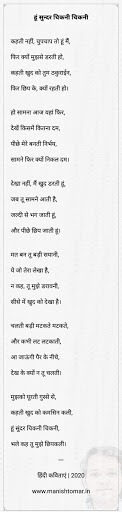 हूं सुन्दर चिकनी चिकनी
कहती नहीं, चुपचाप तो हूं मैं,
फिर क्यों मुझसे डरती हो,
कहती खुद को तुम ठकुराईन,
फिर छिप के, क्यों रहती हो।
हो सामना आज यहां फिर,
देखें किसमें कितना दम,
पीछे मेरे बनती निर्भय,
सामने फिर क्यों निकल दम।
देखा नहीं, मैं खुद डरती हूं,
जब तू सामने आती है,
जल्दी से भग जाती हूं,
और पीछे छिप जाती हूं।
मत बन तू बड़ी सयानी,
ये जो तेरा लेखा है,
न कह, तू मुझे डरावनी,
सीधे में खुद को देखा है।
चलती बड़ी मटकते मटकते,
और कभी लट लटकाती,
आ जाऊंगी पैर के नीचे,
देख के क्यों न तू चलती।
मुझको घूरती गुस्से से,
कहती खुद को कमसिन कली,
हूं सुंदर चिकनी चिकनी,
भले कह तू मुझे छिपकली।
—
हिंदी कविताएं | 2020
www.manishtomar.in